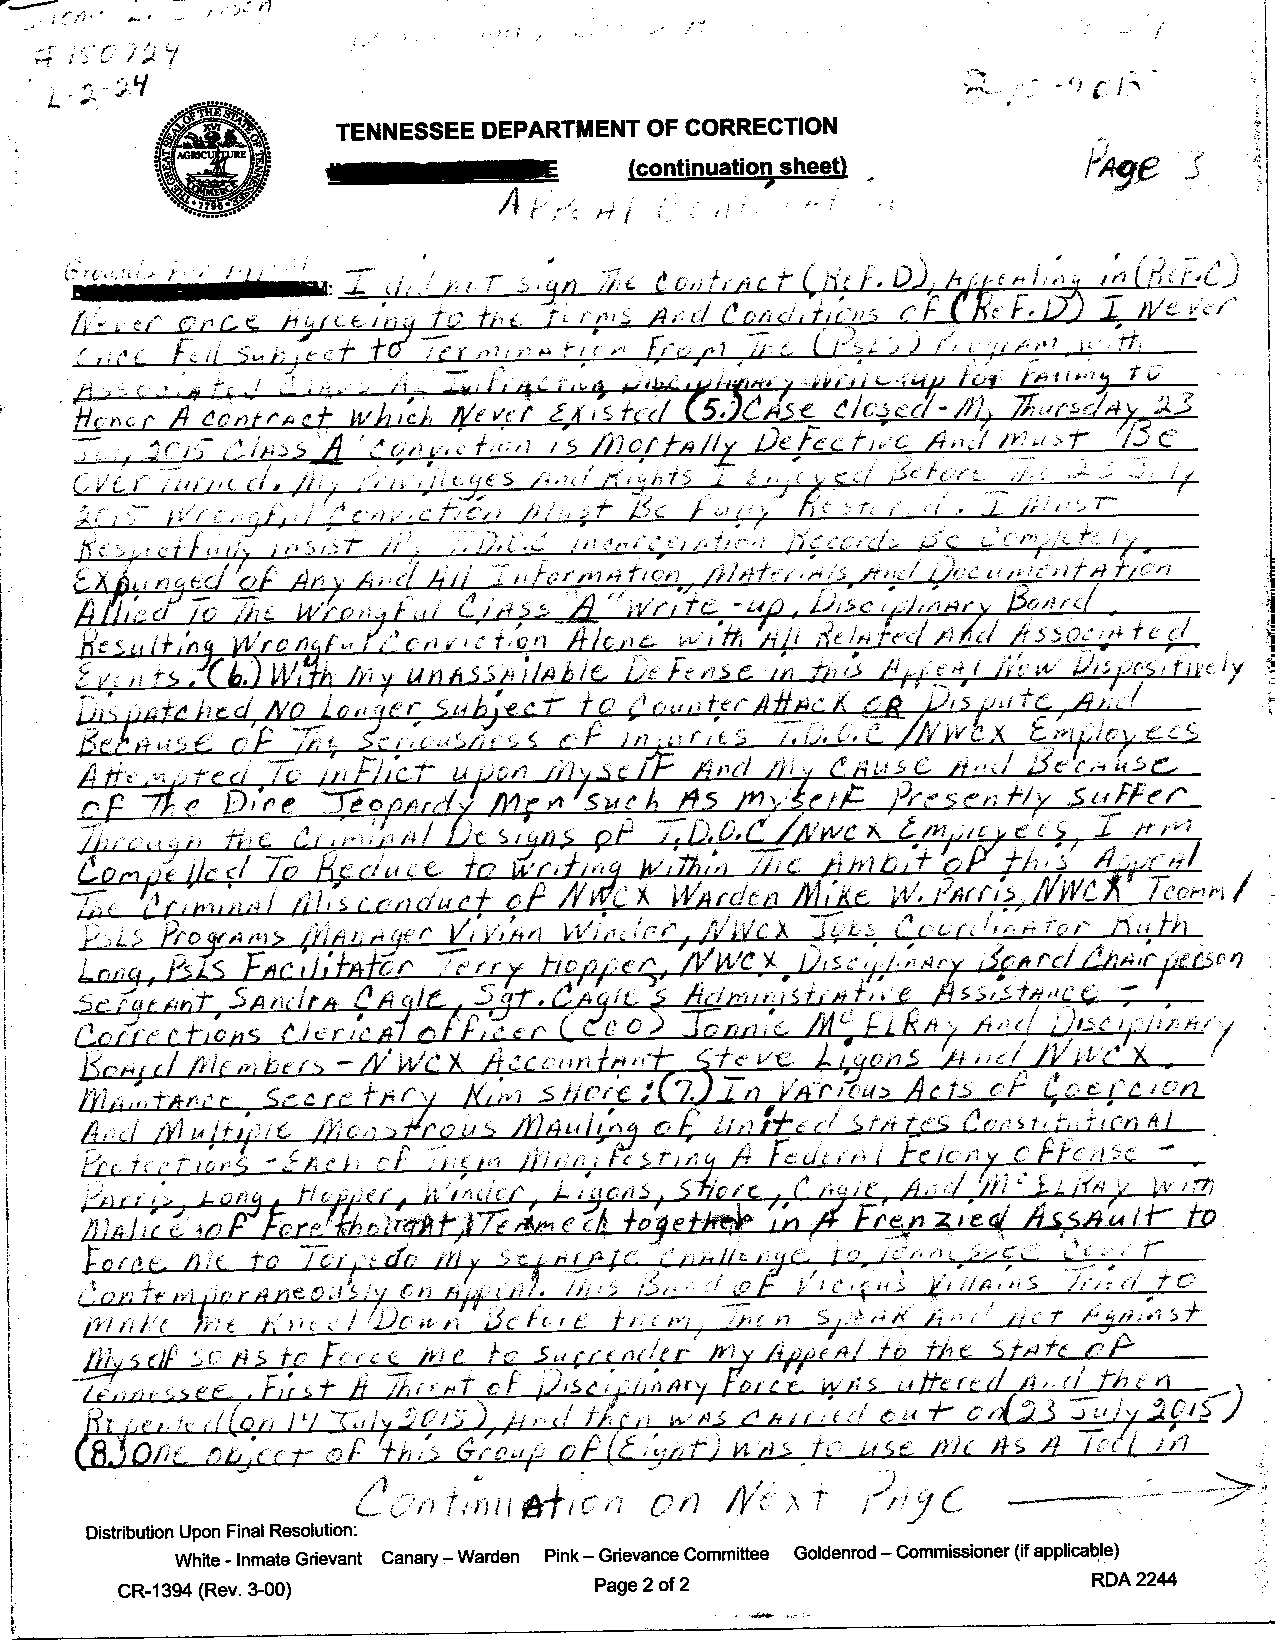 # 150724
L-2-24
TENNESSEE DEPARTMENT OF CORRECTION
(continuation sheet)
PAge 3
Grounds For Appeal: I did not sign The contract (Ref. D), Appealing in (Ref. C)
Never once Agreeing to the terms And Conditions of (Ref. D) I Never
once Fell Subject to Termination From The (PSLS) Program with
Associated Class A Infracting Disciplinary write-up for failing to
Honor A contract which Never Existed (5.) CASE closed - My ThursdAy 23
July 2015 Class "A" Conviction is Mortally Defective And must Be
Overturned. My Privileges And Rights I Enjoyed Before the 23 July
2015 Wrongful Conviction Must Be Fully Restored. I Must
Respectfully insist My T.D.O.C incarceration Records Be Completely
Expunged of Any And All Information, Materials, And Documentation
Allied To The Wrongful Class "A" Write-up, Disciplinary Board
Resulting Wrongful Conviction Alone with All Related And Associated
Events. (6.) With My unAssailable Defense in this Appeal Now Dispositively
Dispatched, No Longer Subject to Counter Attack OR Dispute, And
Because of The Seriousness of injuries T.D.O.C/NWCX Employees
Attempted To inflict upon Myself And My CAuse And Because
of The Dire Jeopardy Men such As myself Presently Suffer
Through the Criminal Designs of T.D.O.C/NWCX Employees, I Am
Compelled To Reduce to writing within The Ambit of this Appeal
The Criminal Misconduct of NWCX Warden Mike W. Parris, NWCX Tcomm/
PSLS Programs Manager Vivian Winder, NWCX Jobs Coordinator Ruth
Long, PSLS Facilitator Terry Hopper, NWCX Disciplinary Board Chairperson
Sergeant, Sandra CAgle, Sgt. CAgle's Administrative Assistance -
Corrections Clerical officer (CCO) Jonnie McElRAy And Disciplinary
Board Members - NWCX Accountant Steve Ligons And NWCX
MaintAnce Secretary Kim SHore: (7.) In Various Acts of Coercion
And Multiple Monstrous Mauling of United States Constitutional
Protections - Each of Them Manifesting A Federal Felony Offense -
Parris, Long, Hopper, Winder, Ligons, SHore, CAgle, And McElRAy with
Malice of Forethought Teamed together in A Frenzied Assault to
Force Me to Torpedo My Separate Challenge to Tennessee Court
Contemporaneously on Appeal. This Band of Vicious Villains Tried to
make me Kneel Down Before them, Then Speak And Act Against
Myself so As to Force me to Surrender my Appeal to the State of
Tennessee. First A Threat of Disciplinary Force was uttered And then
Repeated (on 14 July 2015), And then was carried out on (23 July 2015)
(8.) One object of this Group of (Eight) was to use me As A Tool in
Continuation on Next Page
Distribution Upon Final Resolution:
White - Inmate Grievant Canary – Warden Pink – Grievance Committee Goldenrod – Commissioner (if applicable)
CR-1394 (Rev. 3-00) Page 2 of 2 RDA 2244